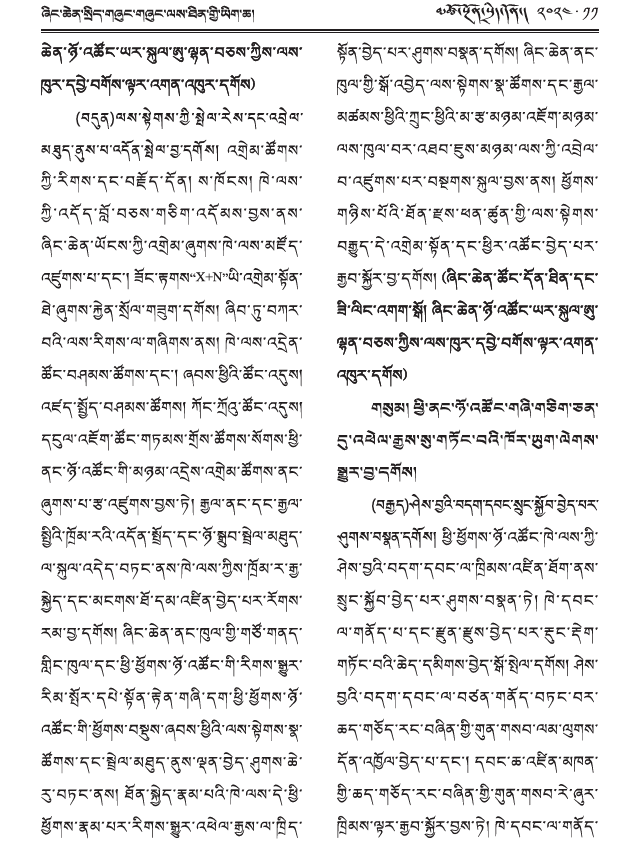 ཞིང་ཆེན་སྲིད་གཞུང་གཞུང་ལས་ཐིན་གྱི་ཡིག་ཆ།
༢༠༢༤·༡༡
ཆེན་ཉོ་འཚོང་ཡར་སྐུལ་ཨུ་ལྷན་བཅས་ཀྱིས་ལས་
ཁུར་དབྱེ་བགོས་ལྟར་འགན་འཁུར་དགོས)
(བདུན)ལས་སྟེགས་ཀྱི་སྤེལ་རེས་དང་འབྲེལ་
མཐུད་ནུས་པ་འདོན་སྤེལ་བྱ་དགོས། འགྲེམ་ཚོགས་
ཀྱི་རིགས་དང་བརྗོད་དོན། ས་ཁོངས། ཁེ་ལས་
ཀྱི་འདོད་བློ་བཅས་གཅིག་འདོམས་བྱས་ནས་
ཞིང་ཆེན་ཡོངས་ཀྱི་འགྲེམ་ཞུགས་ཁེ་ལས་མཛོད་
འཛུགས་པ་དང་། ཟོང་རྟགས“X+N”ཡི་འགྲེམ་སྟོན་
ཐེ་ཞུགས་རྐྱེན་སྲོལ་གཟུག་དགོས། ཞིབ་ཏུ་བཀར་
བའི་ལས་རིགས་ལ་གཞིགས་ནས། ཁེ་ལས་འདྲེན་
ཚོང་བཤམས་ཚོགས་དང་། ཞབས་ཕྱིའི་ཚོང་འདུས།
འཛད་སྤྱོད་བཤམས་ཚོགས། ཀོང་ཀྲོའུ་ཚོང་འདུས།
དངུལ་འཇོག་ཚོང་གཏམས་གྲོས་ཚོགས་སོགས་ཕྱི་
ནང་ཉོ་འཚོང་གི་མཉམ་འདྲེས་འགྲེམ་ཚོགས་ནང་
ཞུགས་པ་རྩ་འཛུགས་བྱས་ཏེ། རྒྱལ་ནང་དང་རྒྱལ་
སྤྱིའི་ཁྲོམ་རའི་འདོན་སྤྲོད་དང་ཉོ་སྒྲུབ་སྦྲེལ་མཐུད་
ལ་སྐུལ་འདེད་བཏང་ནས་ཁེ་ལས་ཀྱིས་ཁྲོམ་ར་རྒྱ་
སྐྱེད་དང་མངགས་ཐོ་དམ་འཛིན་བྱེད་པར་རོགས་
རམ་བྱ་དགོས། ཞིང་ཆེན་ནང་ཁུལ་གྱི་གཙོ་གནད་
གླིང་ཁུལ་དང་ཕྱི་ཕྱོགས་ཉོ་འཚོང་གི་རིགས་སྒྱུར་
རིམ་སྤོར་དཔེ་སྟོན་རྟེན་གཞི་དག་ཕྱི་ཕྱོགས་ཉོ་
འཚོང་གི་ཕྱོགས་བསྡུས་ཞབས་ཕྱིའི་ལས་སྟེགས་སྣ་
ཚོགས་དང་སྦྲེལ་མཐུད་ནུས་ལྡན་བྱེད་ཤུགས་ཆེ་
རུ་བཏང་ནས། ཐོན་སྐྱེད་རྣམ་པའི་ཁེ་ལས་དེ་ཕྱི་
ཕྱོགས་རྣམ་པར་རིགས་སྒྱུར་འཕེལ་རྒྱས་ལ་ཁྲིད་
སྟོན་བྱེད་པར་ཤུགས་བསྣན་དགོས། ཞིང་ཆེན་ནང་
ཁུལ་གྱི་སྒོ་འབྱེད་ལས་སྟེགས་སྣ་ཚོགས་དང་རྒྱལ་
མཚམས་ཕྱིའི་ཀྲུང་ཕྱིའི་མ་རྩ་མཉམ་འཇོག་མཉམ་
ལས་ཁུལ་བར་འཐབ་ཇུས་མཉམ་ལས་ཀྱི་འབྲེལ་
བ་འཛུགས་པར་བསྔགས་སྐུལ་བྱས་ནས། ཕྱོགས་
གཉིས་པོའི་ཐོན་རྫས་ཕན་ཚུན་གྱི་ལས་སྟེགས་
བརྒྱུད་དེ་འགྲེམ་སྟོན་དང་ཕྱིར་འཚོང་བྱེད་པར་
རྒྱབ་སྐྱོར་བྱ་དགོས། (ཞིང་ཆེན་ཚོང་དོན་ཐིན་དང་
ཟི་ལིང་འགག་སྒོ། ཞིང་ཆེན་ཉོ་འཚོང་ཡར་སྐུལ་ཨུ་
ལྷན་བཅས་ཀྱིས་ལས་ཁུར་དབྱེ་བགོས་ལྟར་འགན་
འཁུར་དགོས)
གསུམ། ཕྱི་ནང་ཉོ་འཚོང་གཞི་གཅིག་ཅན་
དུ་འཕེལ་རྒྱས་སུ་གཏོང་བའི་ཁོར་ཡུག་ལེགས་
སྒྱུར་བྱ་དགོས།
(བརྒྱད)ཤེས་བྱའི་བདག་དབང་སྲུང་སྐྱོབ་བྱེད་པར་
ཤུགས་བསྣན་དགོས། ཕྱི་ཕྱོགས་ཉོ་འཚོང་ཁེ་ལས་ཀྱི་
ཤེས་བྱའི་བདག་དབང་ལ་ཁྲིམས་འཛིན་ཐོག་ནས་
སྲུང་སྐྱོབ་བྱེད་པར་ཤུགས་བསྣན་ཏེ། ཁེ་དབང་
ལ་གནོད་པ་དང་རྫུན་རྫུས་བྱེད་པར་རྡུང་རྡེག་
གཏོང་བའི་ཆེད་དམིགས་བྱེད་སྒོ་སྤེལ་དགོས། ཤེས་
བྱའི་བདག་དབང་ལ་བཙན་གནོད་བཏང་བར་
ཆད་གཅོད་རང་བཞིན་གྱི་གུན་གསབ་ལམ་ལུགས་
དོན་འཁྱོལ་བྱེད་པ་དང་། དབང་ཆ་འཛིན་མཁན་
གྱི་ཆད་གཅོད་རང་བཞིན་གྱི་གུན་གསབ་རེ་ཞུར་
ཁྲིམས་ལྟར་རྒྱབ་སྐྱོར་བྱས་ཏེ། ཁེ་དབང་ལ་གནོད་